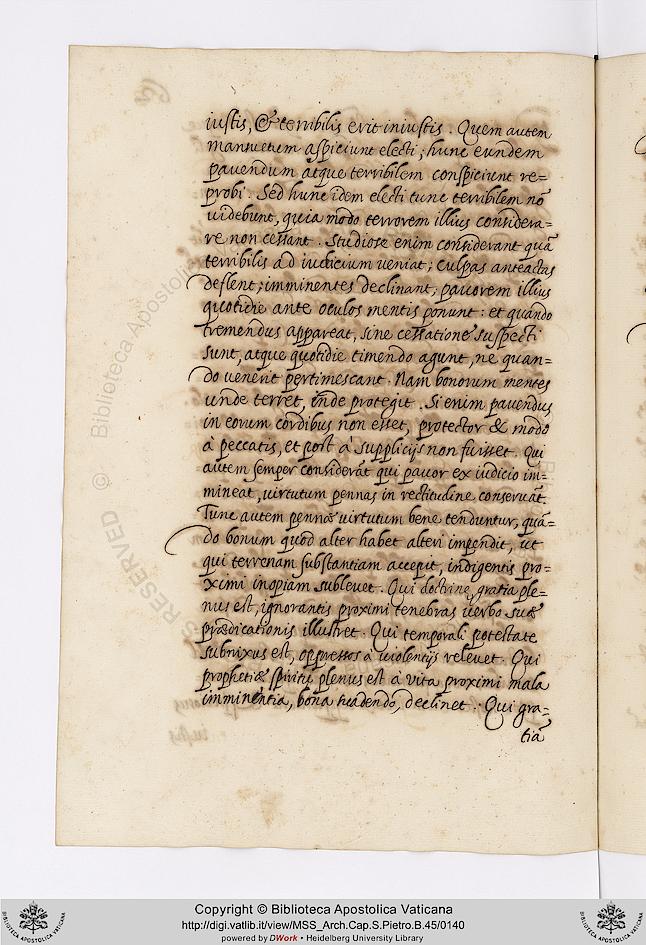 iustis, & terribilis erit iniustis. Quem autem
mansuetum aspiciunt electi; hunc eundem
pavendum atque terribilem conspiciunt re=
probi. Sed hunc idem electi tunc terribilem nõ
videbunt, quia modo terrorem illius considera=
re non cessant. Studiose enim considerant quã
terribilis ad iudicium veniat; culpas anteactas
deflent; imminentes declinant; pavorem illius
quotidie ante oculos mentis ponunt: et quando
tremendus appareat, sine cessatione suspecti
sunt, atque quotidie timendo agunt, ne quan=
do venerit pertimescant. Nam bonorum mentes
unde terret, inde protegit. Si enim pavendus
in eorum cordibus non esset, protector & modo
à peccatis, et post à supplicijs non fuisset. Qui
autem semper considerãt qui pavor ex iudicio im=
mineat, virtutum pennas in rectitudine conservãt.
Tunc autem pennæ virtutum bene tenduntur, quã=
do bonum quod alter habet alteri impendit, ut
qui terrenam substantiam accepit, indigentis pro=
ximi inopiam sublevet. Qui doctrinę gratia ple=
nus est, ignorantis proximi tenebras verbo suæ
prædicationis illustret. Qui temporali potestate
subnixus est, oppressos à violentijs relevet. Qui
prophetiæ spiritu plenus est à vita proximi mala
imminentia, bona suadendo, declinet. Qui gra=
tia
Copyright © Biblioteca Apostolica Vaticana
http://digi.vatlib.it/view/MSS_Arch.Cap.S.Pietro.B.45/0140
powered by DWork • Heidelberg University Library